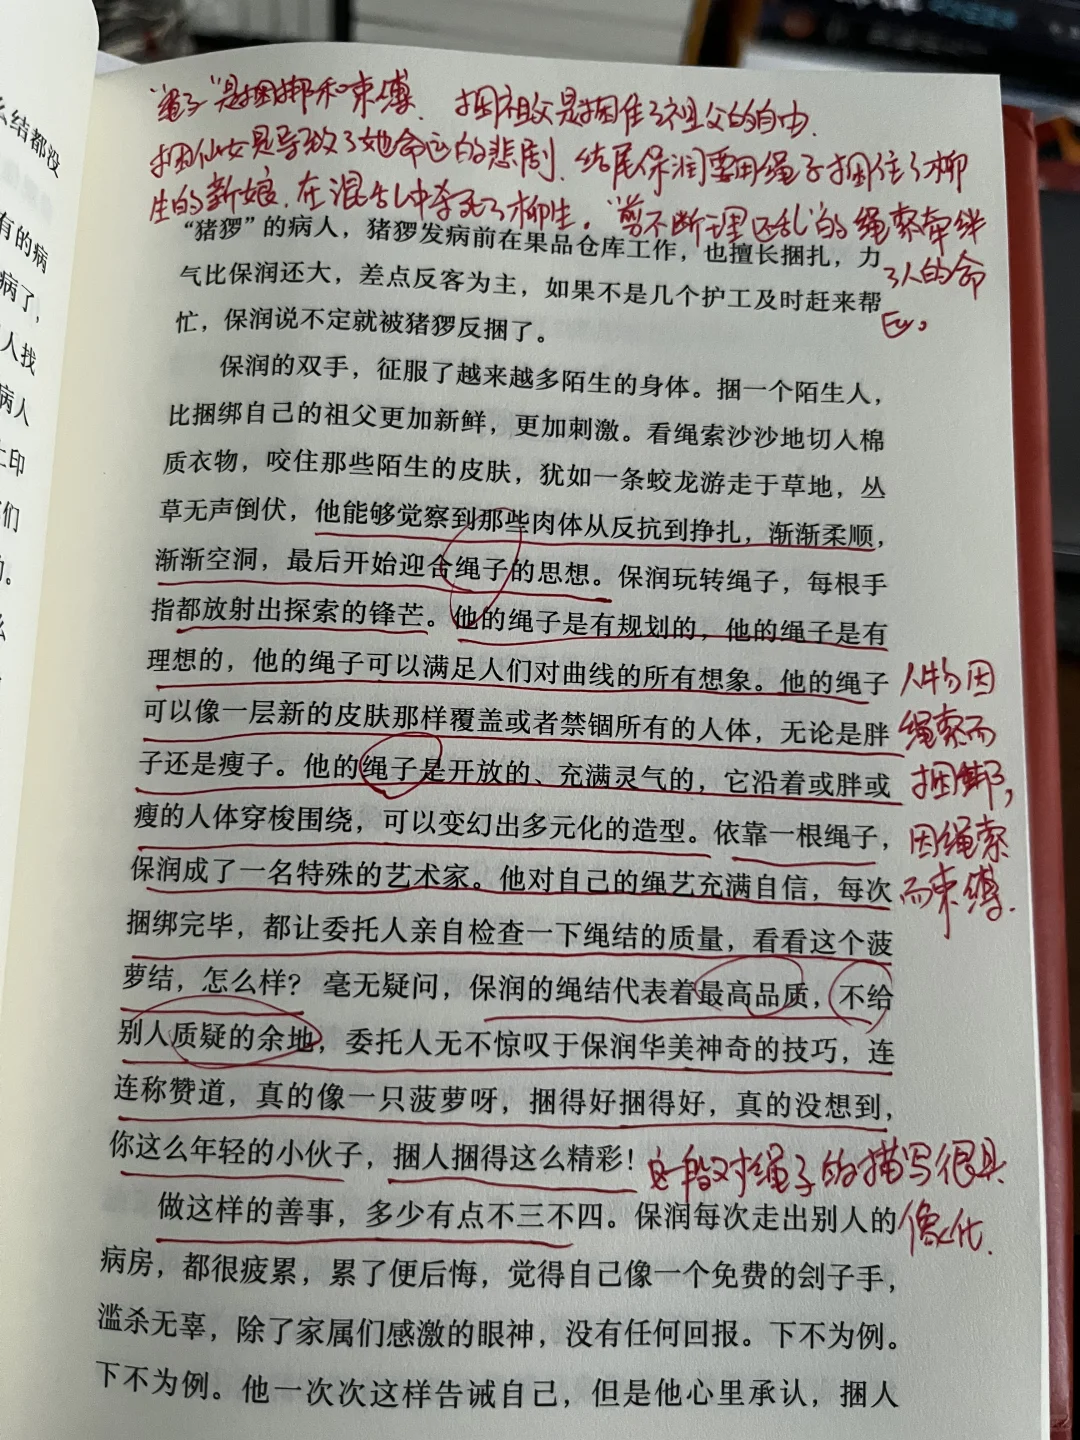 么结都没
有的病
病了，
人找
病人
上印
们
的。
么
“绳子”是捆绑和束缚、捆祖父是捆住了祖父的自由、
捆仙女是导致了她命运的悲剧、结尾保润要用绳子捆住了柳
生的新娘、在混乱中杀死了柳生。“剪不断理还乱”的绳索牵绊
了人的命
运。
“猪猡”的病人，猪猡发病前在果品仓库工作，也擅长捆扎，力
气比保润还大，差点反客为主，如果不是几个护工及时赶来帮
忙，保润说不定就被猪猡反捆了。
保润的双手，征服了越来越多陌生的身体。捆一个陌生人，
比捆绑自己的祖父更加新鲜，更加刺激。看绳索沙沙地切入棉
质衣物，咬住那些陌生的皮肤，犹如一条蛟龙游走于草地，丛
草无声倒伏，他能够觉察到那些肉体从反抗到挣扎，渐渐柔顺，
渐渐空洞，最后开始迎合绳子的思想。保润玩转绳子，每根手
指都放射出探索的锋芒。他的绳子是有规划的，他的绳子是有
理想的，他的绳子可以满足人们对曲线的所有想象。他的绳子
可以像一层新的皮肤那样覆盖或者禁锢所有的人体，无论是胖
子还是瘦子。他的绳子是开放的、充满灵气的，它沿着或胖或
瘦的人体穿梭围绕，可以变幻出多元化的造型。依靠一根绳子，
保润成了一名特殊的艺术家。他对自己的绳艺充满自信，每次
捆绑完毕，都让委托人亲自检查一下绳结的质量，看看这个菠
萝结，怎么样？毫无疑问，保润的绳结代表着最高品质，不给
别人质疑的余地，委托人无不惊叹于保润华美神奇的技巧，连
连称赞道，真的像一只菠萝呀，捆得好捆得好，真的没想到，
你这么年轻的小伙子，捆人捆得这么精彩！
做这样的善事，多少有点不三不四。保润每次走出别人的
病房，都很疲累，累了便后悔，觉得自己像一个免费的刽子手，
滥杀无辜，除了家属们感激的眼神，没有任何回报。下不为例。
下不为例。他一次次这样告诫自己，但是他心里承认，捆人
人物因
绳索而
捆绑，
因绳索
而束缚.
这段对绳子的描写很具
像化.